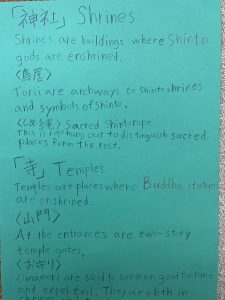 「神社」 Shrines
Shrines are buildings where Shinto
gods are enshrined.
〈鳥居〉
Torii are archways to Shinto shrines
and symbols of shinto.
〈しめ縄〉 Sacred Shinto rope
This is rope hang out to distinguish sacred
places form the rest.
「寺」 Temples
Temples are places where Buddha statues
are enshrined.
〈山門〉
At the entrances are two-story
temple gates.
〈お守り〉
Omamori are said to common good fortune
and expel evil. They are both in